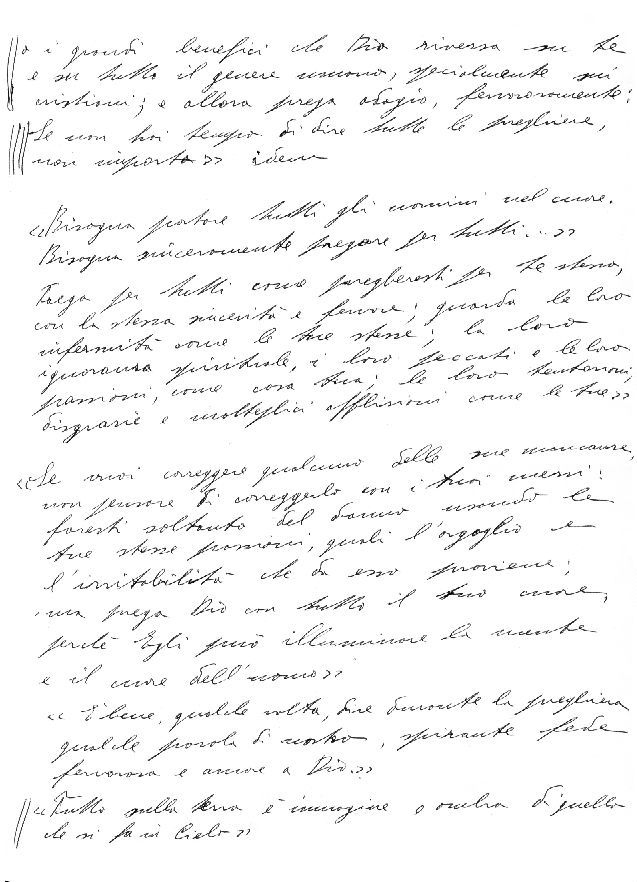 o i grandi benefici che Dio riversa su te
e su tutto il genere umano, specialmente sui
cristiani; e allora prega adagio, fervorosamente;
Se non hai tempo di dire tutte le preghiere,
non importa>> idem
<<Bisogna portare tutti gli uomini nel cuore.
Bisogna sinceramente pregare per tutti...>>
Prega per tutti come pregheresti per te stesso,
con la stessa sincerità e fervore; guarda le loro
infermità come le tue stesse; la loro
ignoranza spirituale, i loro peccati e le loro
passioni, come cosa tua; le loro tentazioni,
disgrazie e molteplici afflizioni come le tue>>
<<Se vuoi correggere qualcuno delle sue mancanze,
non pensare di correggerlo con i tuoi mezzi:
faresti soltanto del danno usando le
tue stesse passioni, quali l'orgoglio e
l'irritabilità che da esso proviene;
ma prega Dio con tutto il tuo cuore,
perchè Egli può illuminare la mente
e il cuore dell'uomo>>
<<E' bene, qualche volta, dire durante la preghiera
qualche parola di nostro, spirante fede
fervorosa e amore a Dio.>>
<<Tutto sulla terra è immagine o ombra di quello
che si fa in Cielo>>